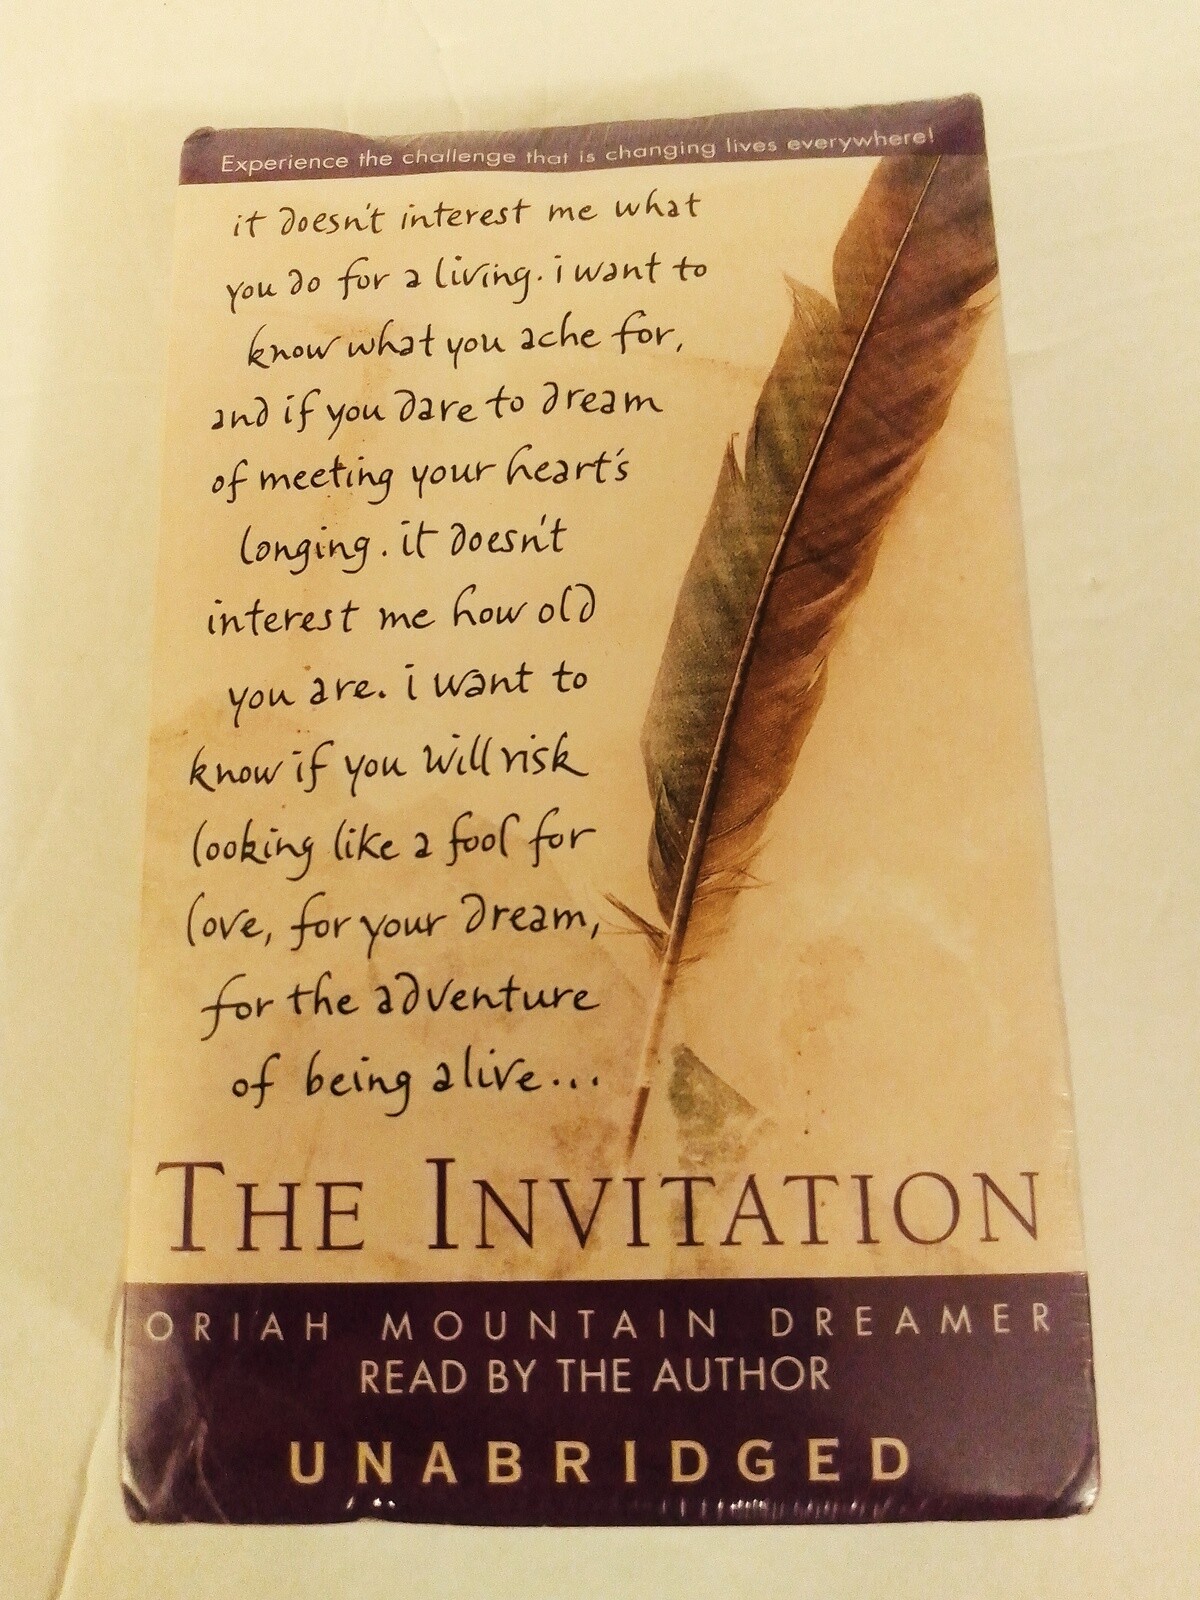 Experience the challenge that is changing lives everywhere!
it doesn't interest me what
you do for a living. i want to
know what you ache for,
and if you dare to dream
of meeting your heart's
longing. it doesn't
interest me how old
you are. i want to
know if you will risk
looking like a fool for
love, for your dream,
for the adventure
of being alive...
THE INVITATION
ORIAH MOUNTAIN DREAMER
READ BY THE AUTHOR
UNABRIDGED